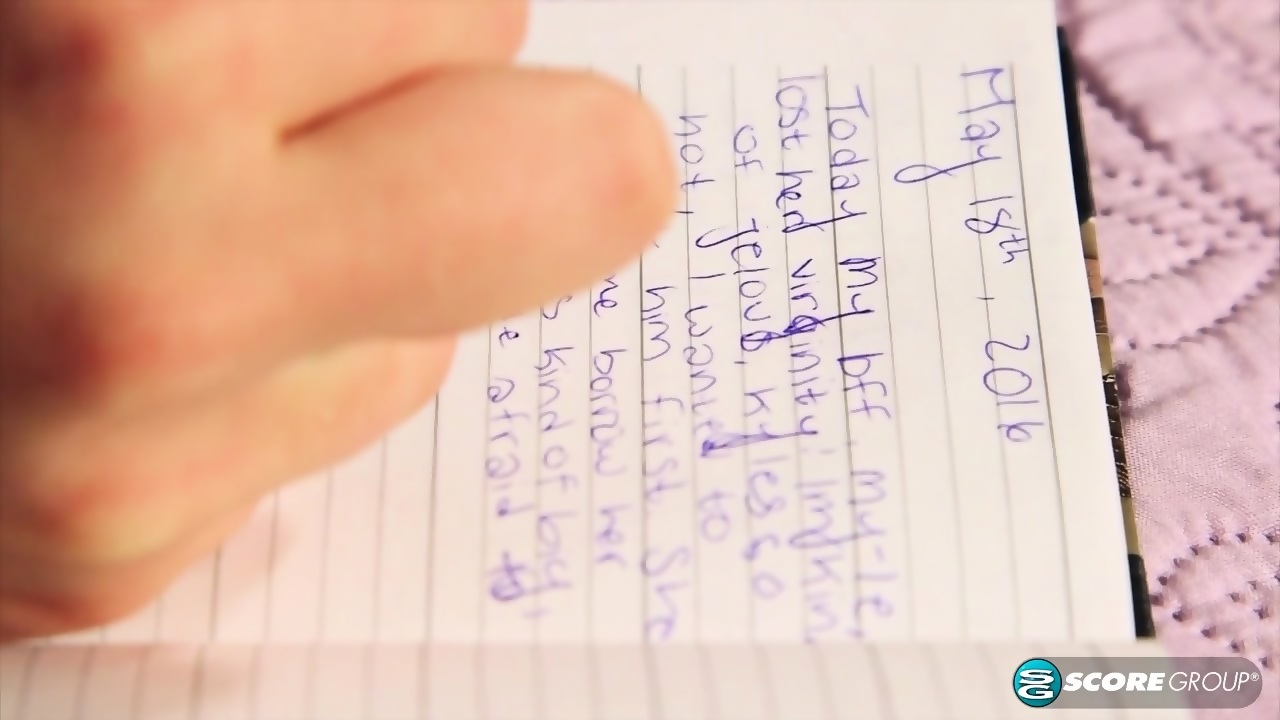 May 18th, 2016
Today my bff, my-le,
lost her virginity! Im kin
of jelous, kyles so
hot, I wanted to
him first She
me borrow her
kind of big,
afraid to,
SG SCOREGROUP®